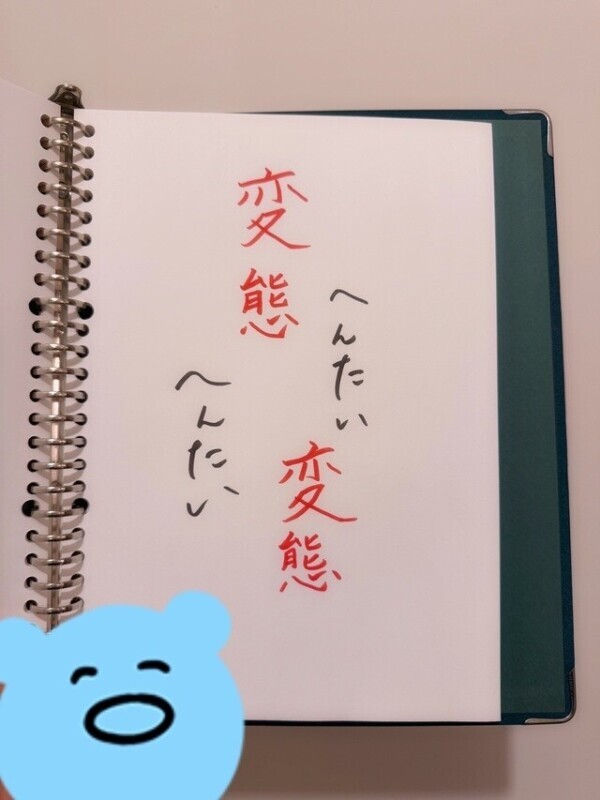 へんたい
変態
変態
へんたい